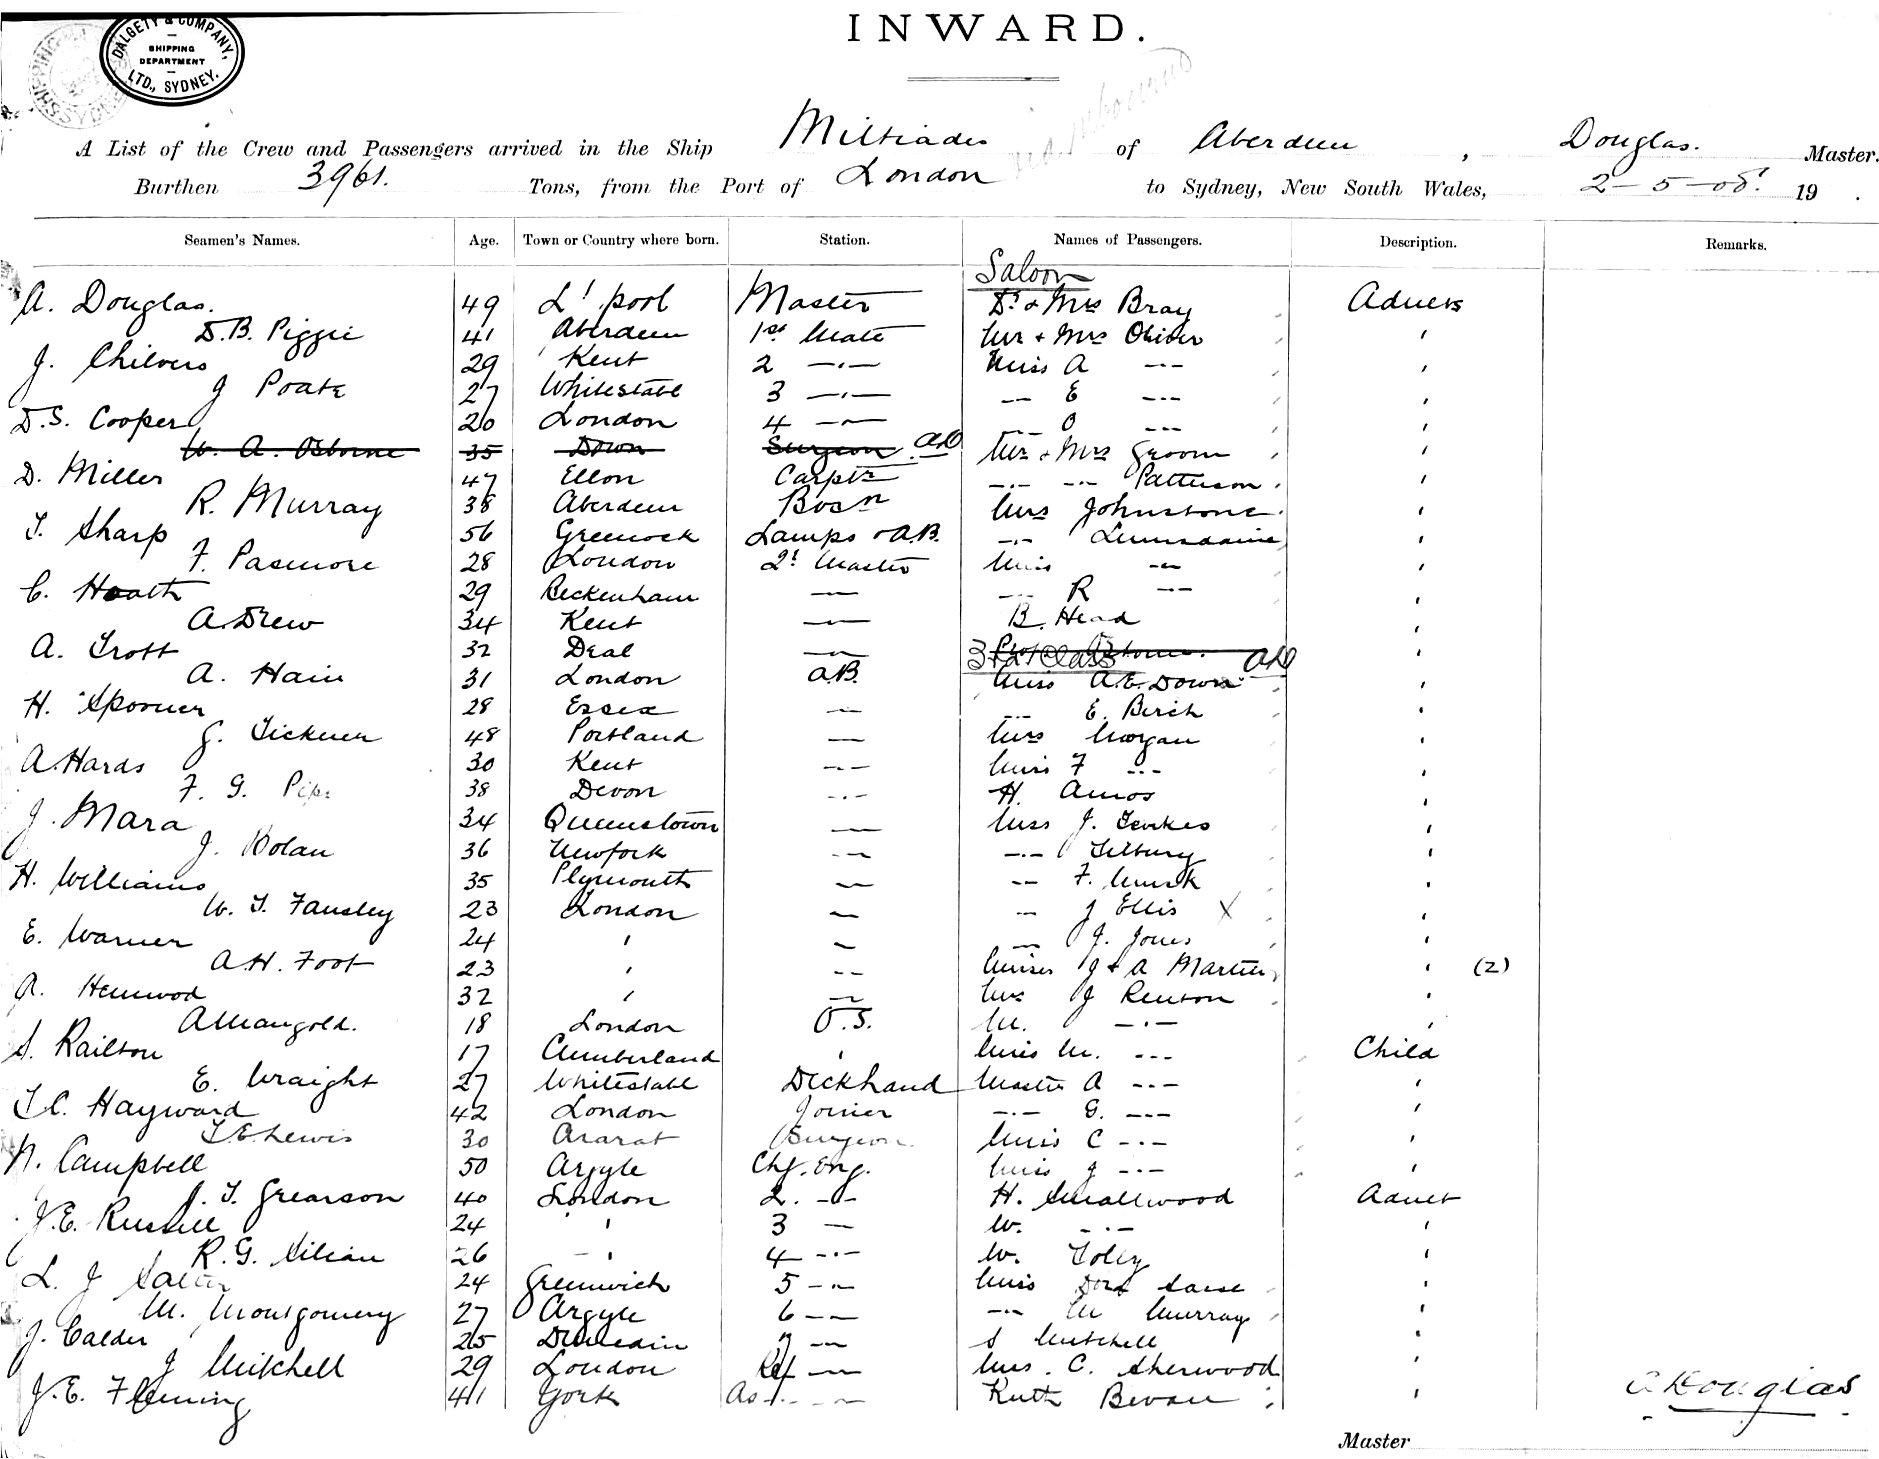 INWARD.
DALGETY & COMPANY, LTD., SYDNEY.
SHIPPING DEPARTMENT
A List of the Crew and Passengers arrived in the Ship Miltiades of Aberdeen, Douglas. Master.
Burthen 3961. Tons, from the Port of London to Sydney, New South Wales, 2-5-08. 19 .
Seamen's Names. Age. Town or Country where born. Station. Names of Passengers. Description. Remarks.
Saloon
A. Douglas. 49 L'pool Master Dr & Mrs Bray Adults
D.B. Piggie 41 Aberdeen 1st Mate Mr & Mrs Oliver '
J. Chilvers 29 Kent 2 -"- Miss A -"- '
J Poate 27 Whitestable 3 -"- -"- E -"- '
D.S. Cooper 20 London 4 -"- -"- O -"- '
W. A. Osborne 35 Down Surgeon AD Mr & Mrs Groom '
D. Miller 47 Ellon Carptr -"- -"- Patterson '
R. Murray 38 Aberdeen Bosn Mrs Johnstone '
T. Sharp 56 Greenock Lamps & A.B. -"- Lumsdaine '
F. Pasmore 28 London Qr Master Miss -"- '
C. Hoath 29 Beckenham -"- -"- R -"- '
A. Drew 34 Kent -"- B. Head '
A. Trott 32 Deal -"- Osborne. AD '
3rd Class
A. Hain 31 London A.B. Miss A.E. Down '
H. Spooner 28 Essex -"- -"- E. Birch '
G. Tickner 48 Portland -"- Mrs Morgan '
A. Hards 30 Kent -"- Miss F -"- '
F. G. Pipe 38 Devon -"- H. Amos '
J. Mara 34 Queenstown -"- Miss J. '
J. Bolan 36 -"- -"- Tilbury '
H. Williams 35 Plymouth -"- -"- F. '
W. T. Fansley 23 London -"- -"- J Ellis X '
E. Warner 24 ' -"- -"- J. Jones '
A.H. Foot 23 ' -"- Misses J & A Martin ' (2)
A. Henwood 32 ' -"- Mrs J Renton '
A Mangold. 18 London O.S. M. -"- '
S. Railton 17 Cumberland ' Miss M. -"- Child
E. Wraight 27 Whitestable Deckhand Master A -"- '
T C. Hayward 42 London Joiner -"- G. -"- '
T.E. Lewis 30 Ararat Surgeon Miss C -"- '
N. Campbell 50 Argyle Chf. Eng. Miss J -"- '
J. T. Grearson 40 London 2. -"- H. Smallwood Adult
J.E. Russell 24 ' 3 -"- W. -"- '
R. G. 26 -' 4 -"- W. Foley '
L. J Salter 24 Greenwich 5 -"- Miss Dora '
M. Montgomery 27 Argyle 6 -"- -"- M Murray '
J. Calder 25 Dunedin 7 -"- S Mitchell '
J Mitchell 29 London Ref -"- Mrs. C. Sherwood '
J.E. Fleming 41 York As -"- Ruth Bevan '
A Douglas
Master